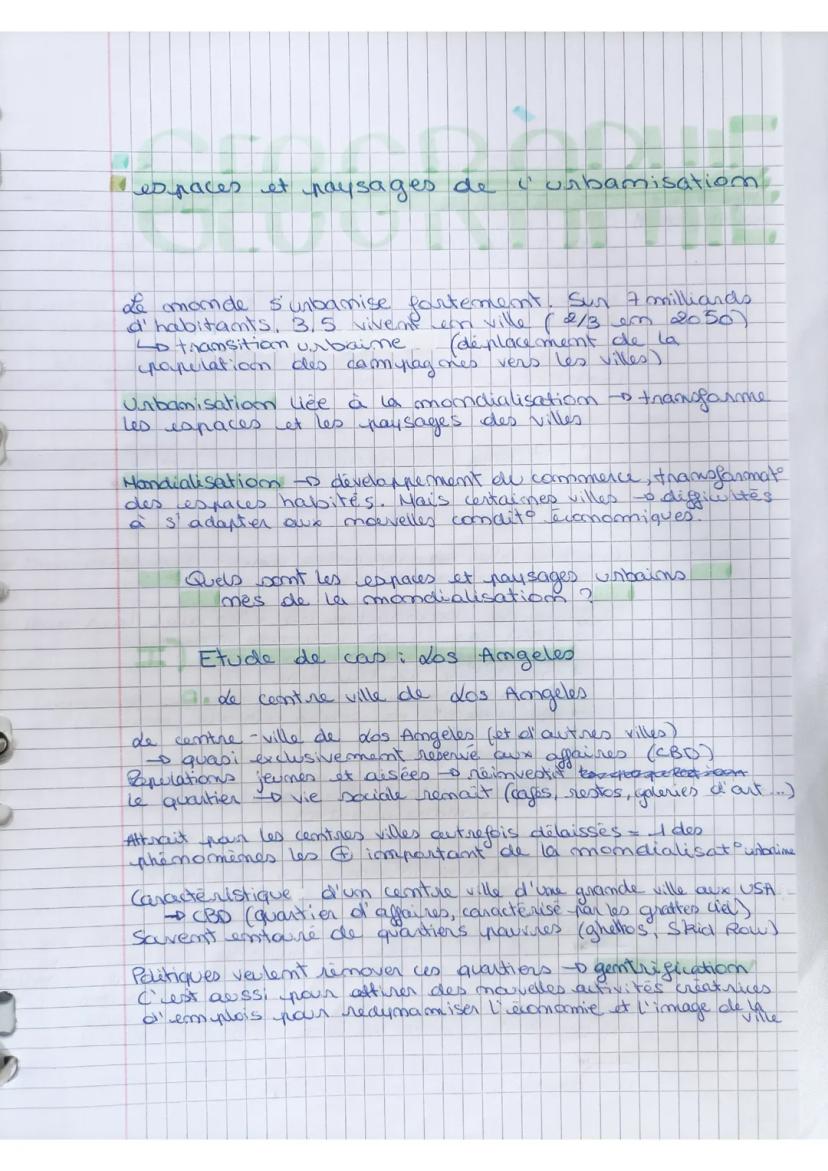 GÉOGRAPHIE
espaces et paysages de l'urbanisation
Le monde s'urbanise fortement. Sur 7 milliards
d'habitants, 3,5 vivent en ville (2/3 en 2050)
↳ transition urbaine (déplacement de la
population des campagnes vers les villes)
Urbanisation liée à la mondialisation → transforme
les espaces et les paysages des villes
Mondialisation → développement du commerce, transformat°
des espaces habités. Mais certaines villes → difficultés
à s'adapter aux nouvelles condit° économiques.
Quels sont les espaces et paysages urbains
nés de la mondialisation ?
I) Etude de cas : Los Angeles
a. Le centre ville de Los Angeles
Le centre-ville de Los Angeles (et d'autres villes)
→ quasi exclusivement réservé aux affaires (CBD)
Populations jeunes et aisées → réinvestit
le quartier → vie sociale renaît (cafés, restos, galeries d'art ...)
Attrait pour les centres villes autrefois délaissés = 1 des
phénomènes les ⊕ important de la mondialisat° urbaine
Caractéristique d'un centre ville d'une grande ville aux USA
→ CBD (quartier d'affaires, caractérisé par les grattes ciel)
Souvent entouré de quartiers pauvres (ghettos, Skid Row)
Politiques veulent rénover ces quartiers → gentrification
C'est aussi pour attirer des nouvelles activités créatrices
d'emplois pour redynamiser l'économie et l'image de la
ville